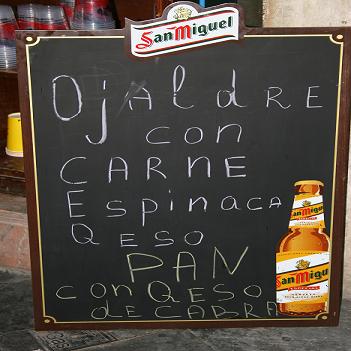 San Miguel
OjAldRE
con
CARNE
Espinaca
QESO
PAN
con QESO
de CABRA
San Migu